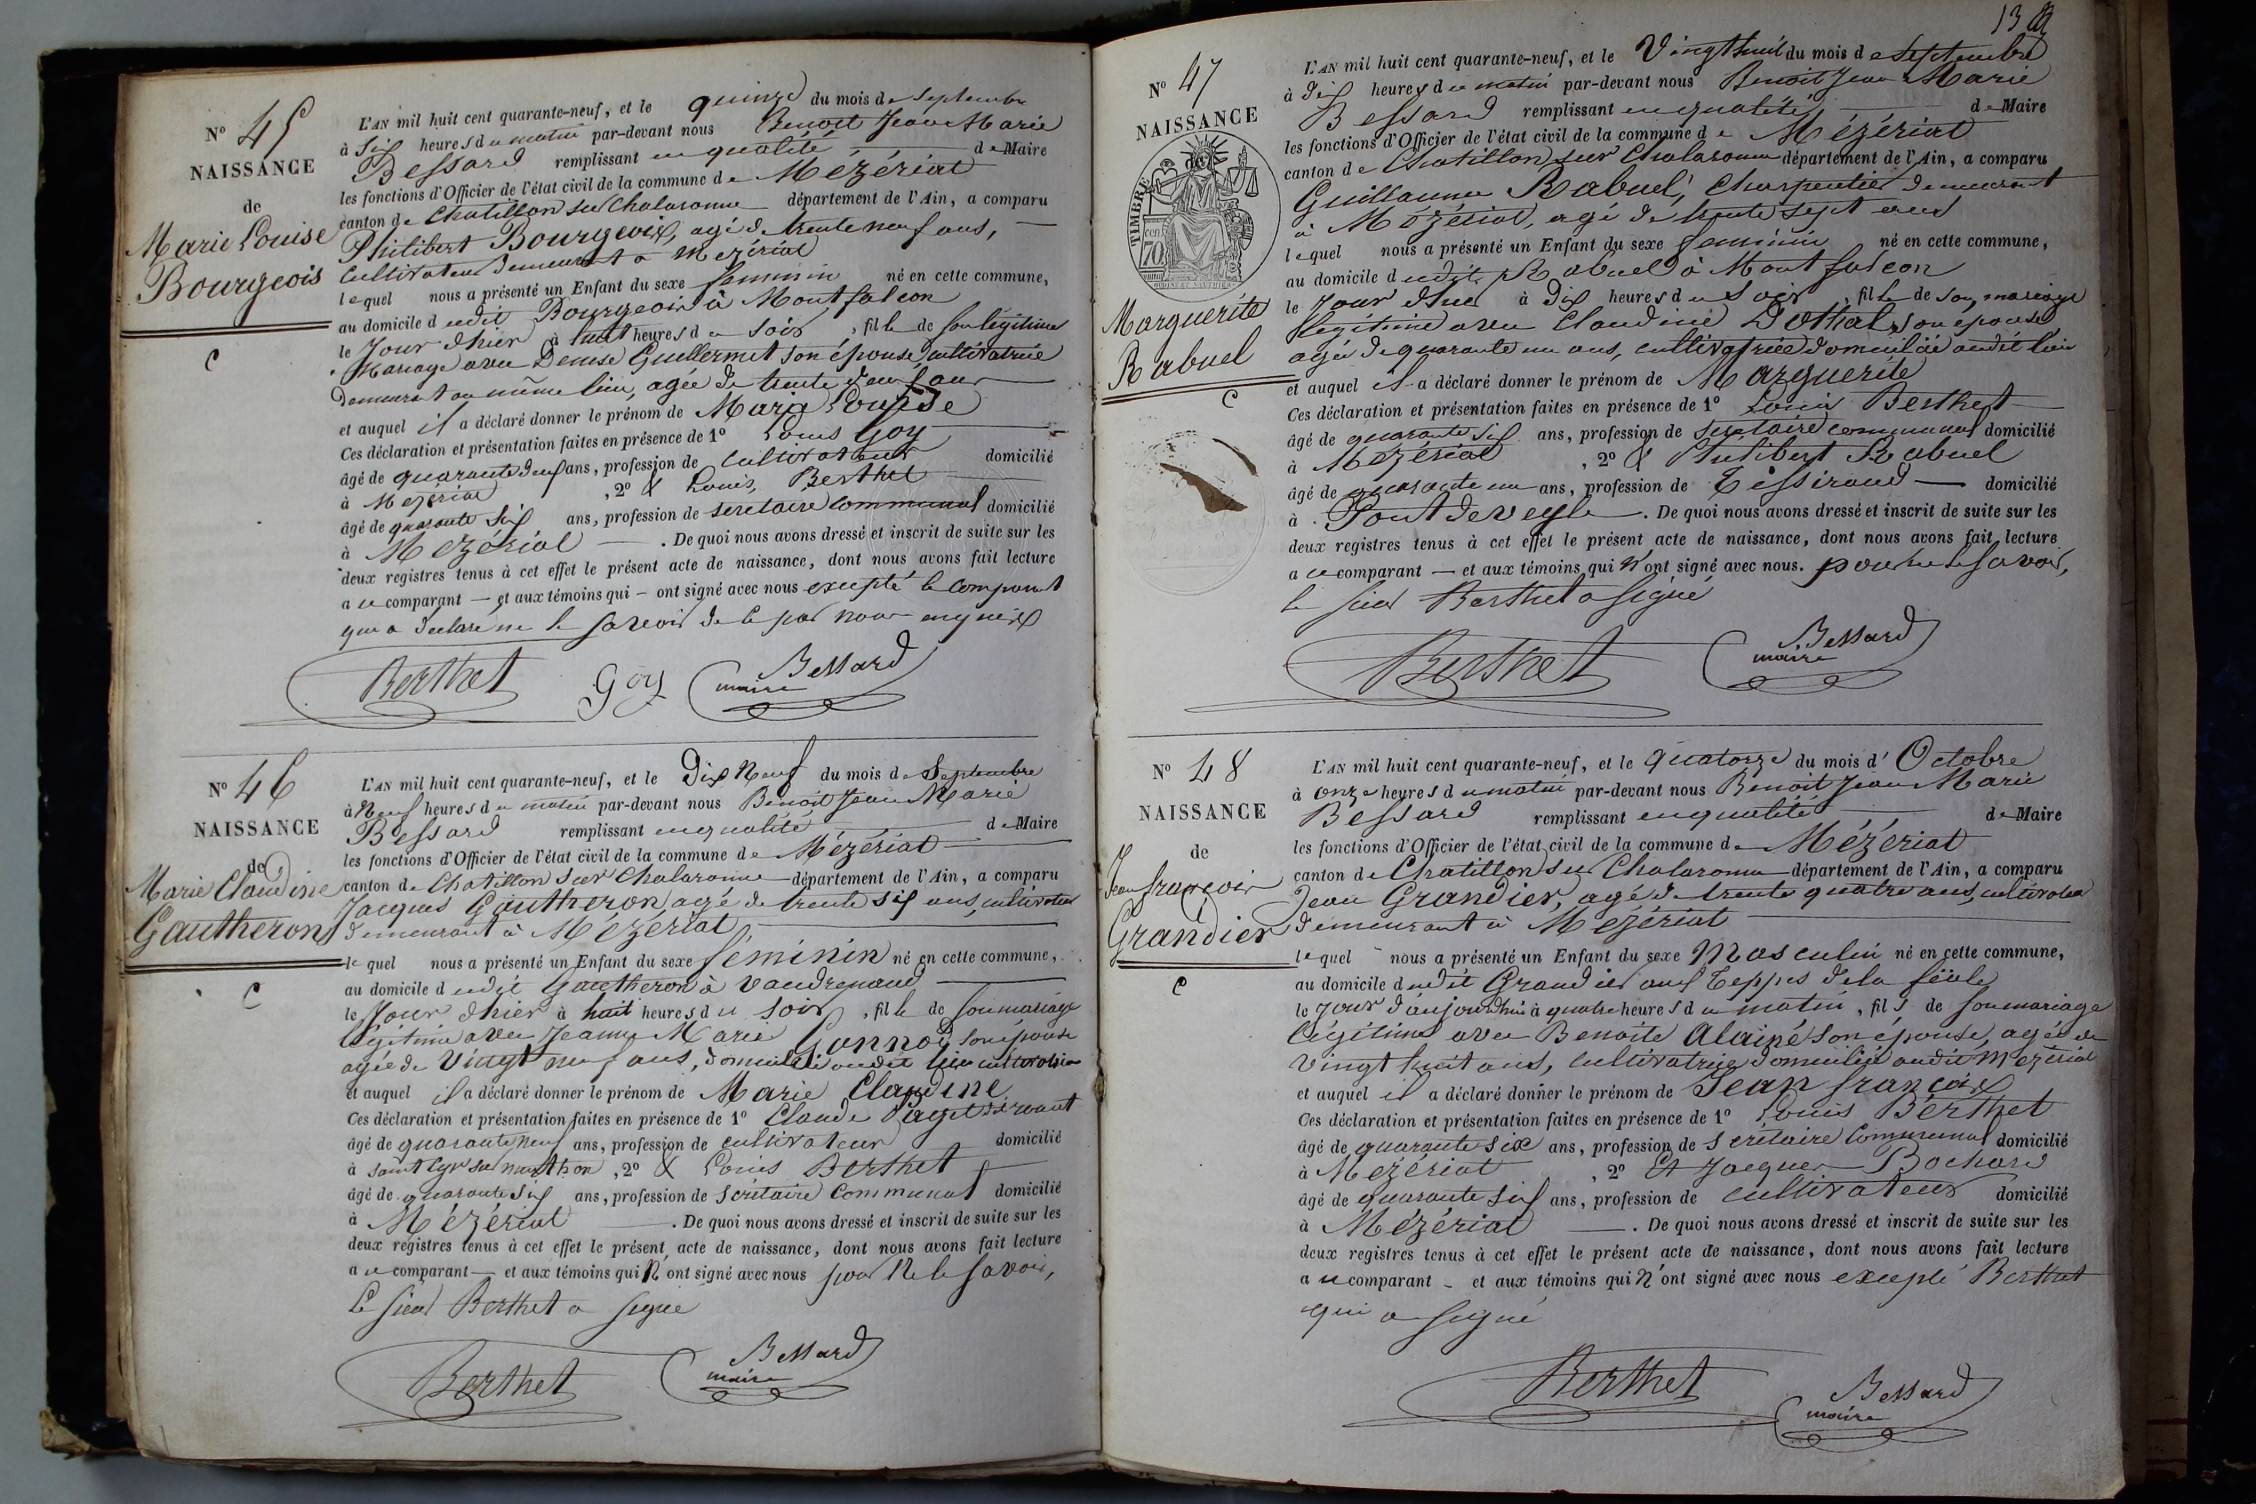 N° 45
NAISSANCE
de
Marie Louise
Bourgeois
C
L'AN mil huit cent quarante-neuf, et le quinze du mois de Septembre
à Six heures du matin par-devant nous Benoit Jean Marie
Bessard remplissant en qualité de Maire
les fonctions d'Officier de l'état civil de la commune de Mézériat
canton de Chatillon sur Chalaronne département de l'Ain, a comparu
Philibert Bourgeois, agé de trente neuf ans,
cultivateur demeurant a Mezériat
lequel nous a présenté un Enfant du sexe feminin né en cette commune,
au domicile dudit Bourgeois à Montfalcon
le Jour d'hier à huit heures du soir, fille de son légitime
Mariage avec Denise Guillermet son épouse cultivatrice
demeurant au même lieu, agée de trente deux ans
et auquel il a déclaré donner le prénom de Marie Louise
Ces déclaration et présentation faites en présence de 1° Louis Goy
âgé de quarante deux ans, profession de cultivateur domicilié
à Mezériat, 2° & Louis Berthet
âgé de quarante six ans, profession de secretaire communal domicilié
à Mezériat. De quoi nous avons dressé et inscrit de suite sur les
deux registres tenus à cet effet le présent acte de naissance, dont nous avons fait lecture
a ce comparant — et aux témoins qui — ont signé avec nous excepté le comparant
qui a déclaré ne le savoir de ce par nous enquis
Berthet Goy Bessard
maire
N° 46
NAISSANCE
de
Marie Claudine
Gautheron
C
L'AN mil huit cent quarante-neuf, et le Dix Neuf du mois de Septembre
à Neuf heures du matin par-devant nous Benoit Jean Marie
Bessard remplissant en qualité de Maire
les fonctions d'Officier de l'état civil de la commune de Mézériat
canton de Chatillon sur Chalaronne département de l'Ain, a comparu
Jacques Gautheron agé de trente six ans, cultivateur
demeurant à Mézériat
lequel nous a présenté un Enfant du sexe féminin né en cette commune,
au domicile dudit Gautheron à Vaudrenand
le Jour d'hier à huit heures du soir, fille de son mariage
légitime avec Jeanne Marie Gonnod son épouse
agée de Vingt neuf ans, domiciliée audit lieu cultivatrice
et auquel il a déclaré donner le prénom de Marie Claudine
Ces déclaration et présentation faites en présence de 1° Claude Paget
âgé de quarante neuf ans, profession de cultivateur domicilié
à Saint Cyr sur menthon, 2° & Louis Berthet
âgé de quarante six ans, profession de secrétaire communal domicilié
à Mézériat. De quoi nous avons dressé et inscrit de suite sur les
deux registres tenus à cet effet le présent acte de naissance, dont nous avons fait lecture
a ce comparant — et aux témoins qui n'ont signé avec nous pour ne le savoir,
le sieur Berthet a signé
Berthet Bessard
maire
13
N° 47
NAISSANCE
TIMBRE
70
Marguerite
Rabuel
C
L'AN mil huit cent quarante-neuf, et le Vingt huit du mois de Septembre
à Dix heures du matin par-devant nous Benoit Jean Marie
Bessard remplissant en qualité de Maire
les fonctions d'Officier de l'état civil de la commune de Mézériat
canton de Chatillon sur Chalaronne département de l'Ain, a comparu
Guillaume Rabuel, Charpentier demeurant
à Mézériat, agé de trente sept ans
lequel nous a présenté un Enfant du sexe feminin né en cette commune,
au domicile dudit Rabuel à Montfalcon
le Jour d'hier à Dix heures du soir, fille de son mariage
légitime avec Claudine Dothal, son épouse,
agée de quarante un ans, cultivatrice domiciliée audit lieu
et auquel il a déclaré donner le prénom de Marguerite
Ces déclaration et présentation faites en présence de 1° Louis Berthet
âgé de quarante six ans, profession de secretaire communal domicilié
à Mézériat, 2° & Philibert Rabuel
âgé de quarante un ans, profession de Tisserand domicilié
à Pont de veyle. De quoi nous avons dressé et inscrit de suite sur les
deux registres tenus à cet effet le présent acte de naissance, dont nous avons fait lecture
a ce comparant — et aux témoins qui n'ont signé avec nous. pour ne le savoir,
le sieur Berthet a signé
Berthet Bessard
maire
N° 48
NAISSANCE
de
Jean françois
Grandier
C
L'AN mil huit cent quarante-neuf, et le quatorze du mois d'Octobre
à onze heures du matin par-devant nous Benoit Jean Marie
Bessard remplissant en qualité de Maire
les fonctions d'Officier de l'état civil de la commune de Mézériat
canton de Chatillon sur Chalaronne département de l'Ain, a comparu
Jean Grandier, agé de trente quatre ans, cultivateur
demeurant à Mezériat
lequel nous a présenté un Enfant du sexe Masculin né en cette commune,
au domicile dudit Grandier aux Teppes de la
le Jour d'aujourd'hui à quatre heures du matin, fils de son mariage
légitime avec Benoite Alainé son épouse, agée de
vingt huit ans, cultivatrice domiciliée audit Mezériat
et auquel il a déclaré donner le prénom de Jean françois
Ces déclaration et présentation faites en présence de 1° Louis Berthet
âgé de quarante six ans, profession de secrétaire communal domicilié
à Mezériat, 2° Et Jacques Bochard
âgé de quarante six ans, profession de cultivateur domicilié
à Mézériat. De quoi nous avons dressé et inscrit de suite sur les
deux registres tenus à cet effet le présent acte de naissance, dont nous avons fait lecture
a ce comparant - et aux témoins qui n'ont signé avec nous excepté Berthet
qui a signé
Berthet Bessard
maire